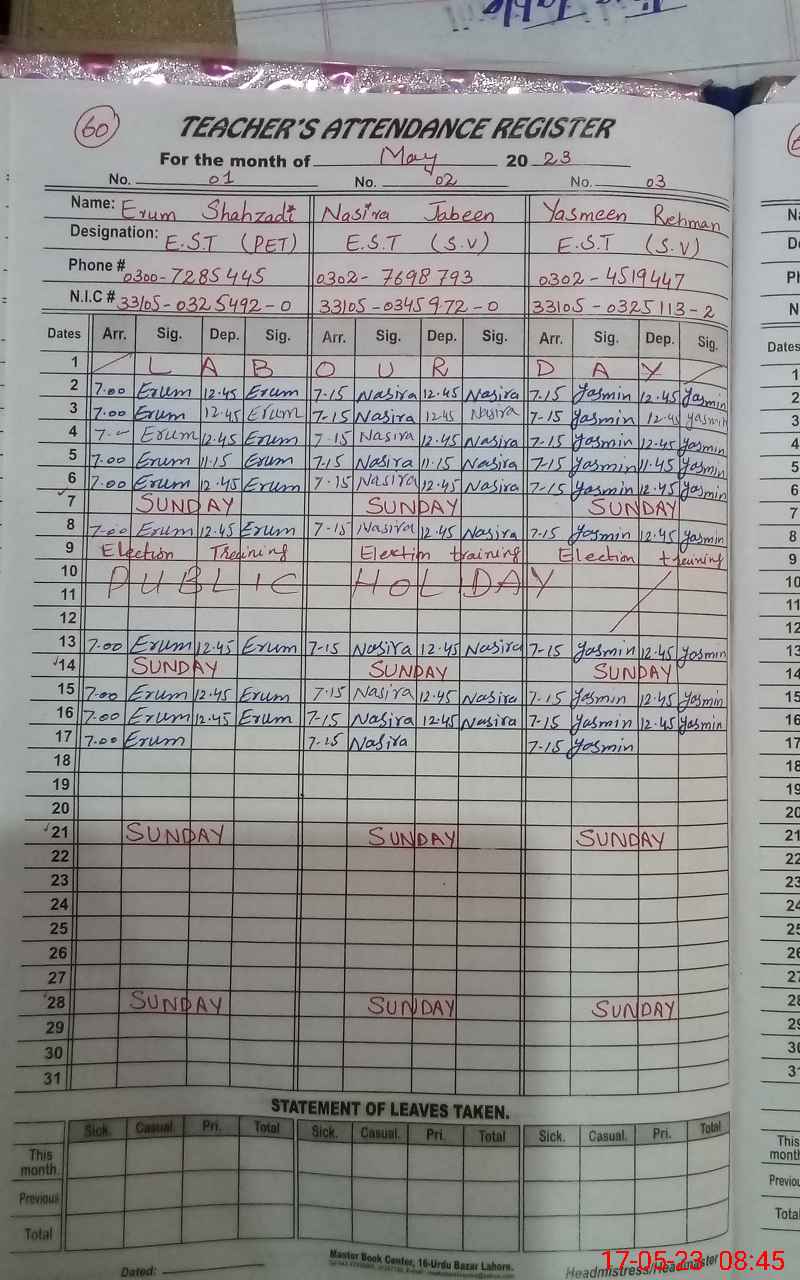 60
TEACHER'S ATTENDANCE REGISTER
For the month of May 2023
No. 01 No. 02 No. 03
Name: Erum Shahzadi Nasira Jabeen Yasmeen Rehman
Designation: E.S.T (PET) E.S.T (S.V) E.S.T (S.V)
Phone # 0300-7285445 0302-7698793 0302-4519447
N.I.C # 33105-0325492-0 33105-0345972-0 33105-0325113-2
Dates Arr. Sig. Dep. Sig. Arr. Sig. Dep. Sig. Arr. Sig. Dep. Sig.
1 LABOUR DAY
2 7.00 Erum 12.45 Erum 7-15 Nasira 12.45 Nasira 7-15 Yasmin 12.45 Yasmin
3 7.00 Erum 12.45 Erum 7-15 Nasira 12.45 Nasira 7-15 Yasmin 12.45 Yasmin
4 Erum 12.45 Erum 7.15 Nasira 12.45 Nasira 7-15 Yasmin 12.45 Yasmin
5 7.00 Erum 11.15 Erum 7-15 Nasira 11.15 Nasira 7-15 Yasmin 11.45 Yasmin
6 7.00 Erum 12.45 Erum 7.15 Nasira 12.45 Nasira 7-15 Yasmin 12.45 Yasmin
7 SUNDAY SUNDAY SUNDAY
8 7.00 Erum 12.45 Erum 7-15 Nasira 12.45 Nasira 7-15 Yasmin 12.45 Yasmin
9 Election Training Election training Election training
10 PUBLIC HOLIDAY
11
12
13 7.00 Erum 12.45 Erum 7-15 Nasira 12.45 Nasira 7-15 Yasmin 12.45 Yasmin
14 SUNDAY SUNDAY SUNDAY
15 7.00 Erum 12.45 Erum 7.15 Nasira 12.45 Nasira 7-15 Yasmin 12.45 Yasmin
16 7.00 Erum 12.45 Erum 7-15 Nasira 12.45 Nasira 7-15 Yasmin 12.45 Yasmin
17 7.00 Erum 7-15 Nasira 7-15 Yasmin
18
19
20
21 SUNDAY SUNDAY SUNDAY
22
23
24
25
26
27
28 SUNDAY SUNDAY SUNDAY
29
30
31
STATEMENT OF LEAVES TAKEN.
Sick. Casual. Pri. Total Sick. Casual. Pri. Total Sick. Casual. Pri. Total
This month.
Previous
Total
Dated:
Master Book Center, 16-Urdu Bazar Lahore.
Headmistress/Headmaster
17-05-23 08:45
Dates
1
2
3
4
5
6
7
8
9
10
11
12
13
14
15
16
17
18
19
20
21
22
23
24
25
26
27
28
29
30
This
Total